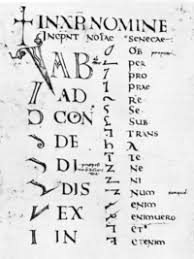 IN XPI NOMINE
INCIPNT NOTAE SENECAE
AB OB
PER
PRO
PRAE
AD RE
CON SE
SUB
DE TRANS
DI
DIS NI
NUM
EX ENIM
ENIMUERO
IN ET
ETENIM